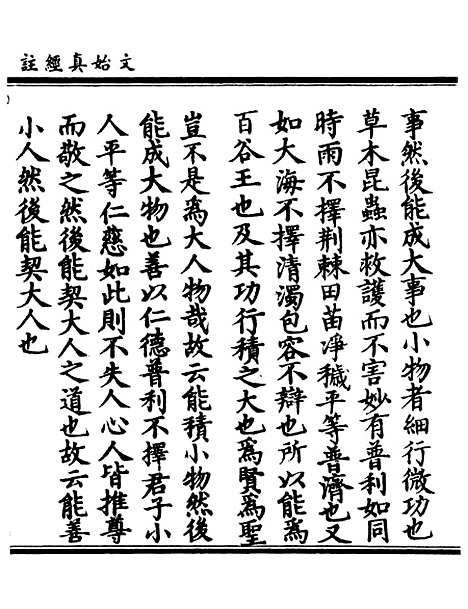 文始真經註
事然後能成大事也小物者細行微功也
草木昆蟲亦救護而不害妙有普利如同
時雨不擇荆棘田苗淨穢平等普濟也又
如大海不擇清濁包容不辯也所以能爲
百谷王也及其功行積之大也爲賢爲聖
豈不是爲大人物哉故云能積小物然後
能成大物也善以仁德普利不擇君子小
人平等仁慈如此則不失人心人皆推尊
而敬之然後能契大人之道也故云能善
小人然後能契大人也